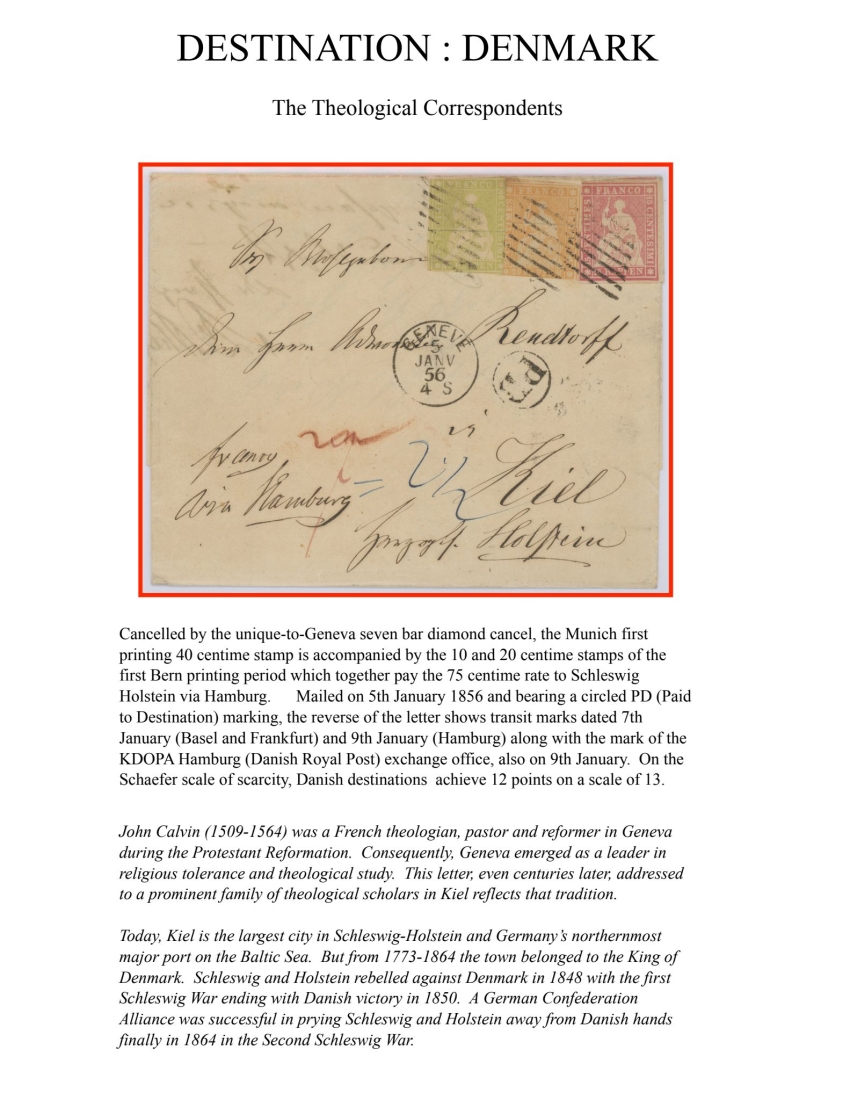 DESTINATION : DENMARK
The Theological Correspondents
FRANCO
Rendtorff
GENEVE
5
JANV
56
4 S
PD
franco
via Hamburg
Kiel
Holstein
Cancelled by the unique-to-Geneva seven bar diamond cancel, the Munich first
printing 40 centime stamp is accompanied by the 10 and 20 centime stamps of the
first Bern printing period which together pay the 75 centime rate to Schleswig
Holstein via Hamburg. Mailed on 5th January 1856 and bearing a circled PD (Paid
to Destination) marking, the reverse of the letter shows transit marks dated 7th
January (Basel and Frankfurt) and 9th January (Hamburg) along with the mark of the
KDOPA Hamburg (Danish Royal Post) exchange office, also on 9th January. On the
Schaefer scale of scarcity, Danish destinations achieve 12 points on a scale of 13.
John Calvin (1509-1564) was a French theologian, pastor and reformer in Geneva
during the Protestant Reformation. Consequently, Geneva emerged as a leader in
religious tolerance and theological study. This letter, even centuries later, addressed
to a prominent family of theological scholars in Kiel reflects that tradition.
Today, Kiel is the largest city in Schleswig-Holstein and Germany’s northernmost
major port on the Baltic Sea. But from 1773-1864 the town belonged to the King of
Denmark. Schleswig and Holstein rebelled against Denmark in 1848 with the first
Schleswig War ending with Danish victory in 1850. A German Confederation
Alliance was successful in prying Schleswig and Holstein away from Danish hands
finally in 1864 in the Second Schleswig War.